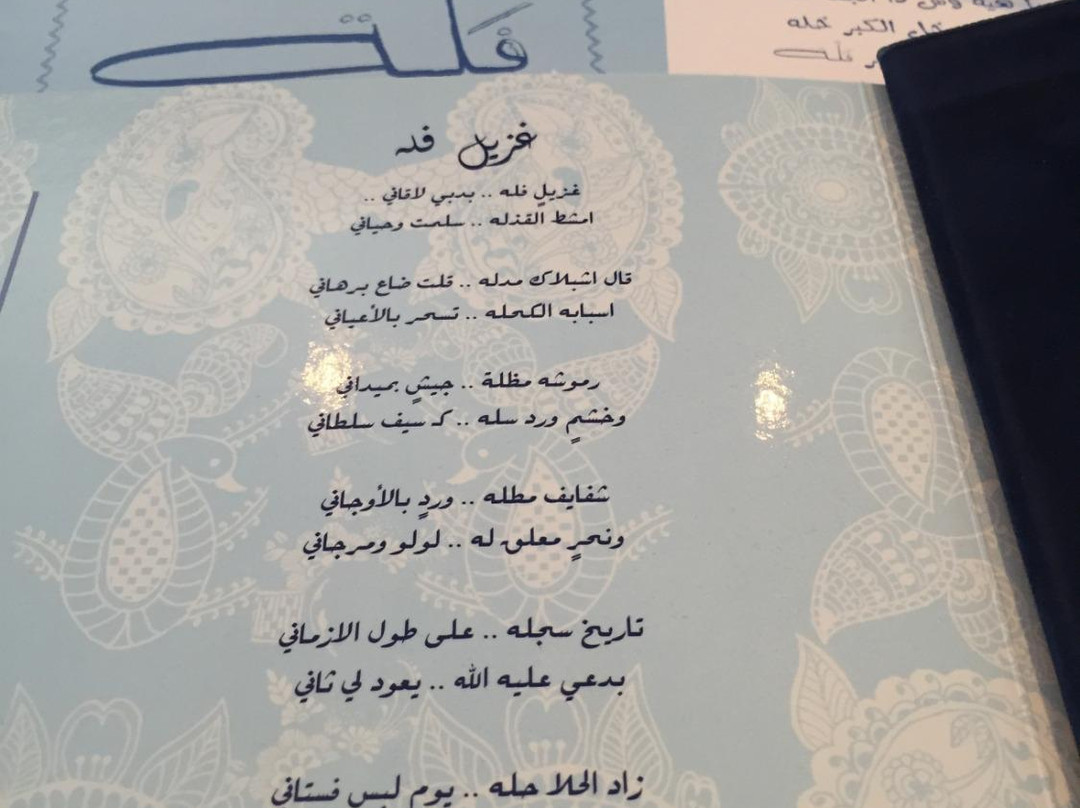 فلة
خلع الكبر خله
فلة
غزيل فله
غزيلٍ فله .. بدبي لاقاني ..
امشط القذله .. سلمت وحياني
قال اشبلاك مدله .. قلت ضاع برهاني
اسبابه الكحله .. تسحر بالأعياني
رموشه مظلة .. جيشٍ بميداني
وخشمٍ ورد سله .. كـ سيف سلطاني
شفايف مطله .. وردٍ بالأوجاني
ونحرٍ معلق له .. لولو ومرجاني
تاريخ سجله .. على طول الازماني
بدعي عليه الله .. يعود لي ثاني
زاد الحلا حله .. يوم لبس فستاني